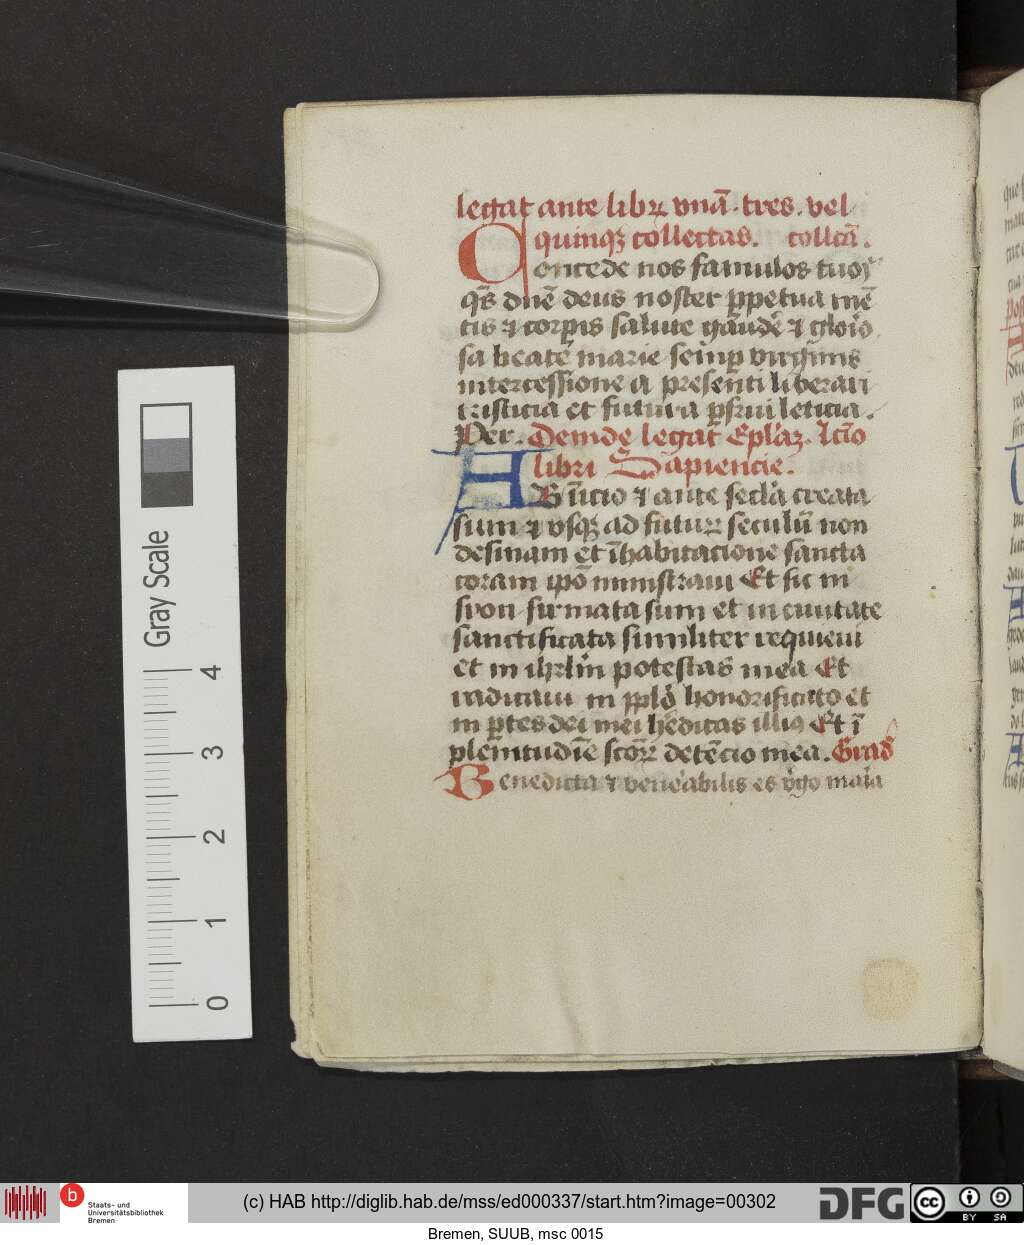 legat ante libꝝ vnā. tres. vel
quinqꝫ collectas. collcā.
Concede nos famulos tuoꝝ
qs̄ dn̄e deus noster ꝑpetua mē
tis ⁊ corꝑis salute gaudē ⁊ glo͛io
sa beate marie semꝑ virginis
intercessione a presenti liberari
tristicia et futura ꝑfrui leticia.
Per. Deinde legat Ep̄laꝫ. lc̄cio
libri Sapiencie.
AB īicio ⁊ ante secl̄a creata
sum ⁊ vsqꝫ ad futuꝝ seculū non
desinam et ī habitacione sancta
coram ip̄o ministraui Et sic in
syon firmata sum et in ciuitate
sanctificata similiter requieui
et in ihrl̄m potestas mea Et
radicaui in pp̄lo honorificato et
in ꝑtes dei mei he͛ditas illiꝰ Et ī
plenitudīe sc̄oꝝ detēcio mea. Grad͛
Benedicta ⁊ vene͛abilis es v͛go ma͛ia
Gray Scale
4
3
2
1
0
b
Staats- und
Universitätsbibliothek
Bremen
(c) HAB http://diglib.hab.de/mss/ed000337/start.htm?image=00302
DFG
cc
BY SA
Bremen, SUUB, msc 0015